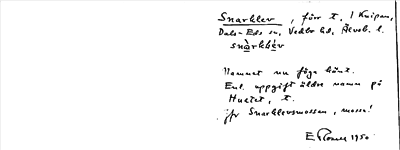 Snarklev, förr t. / Knipan,
Dals-Eds sn, Vedbo hd, Älvsb. l.
snàrklèv
Namnet nu föga känt.
Enl. uppgift äldre namn på
t.
jfr Snarklevsmossen, mosse!
E 1950